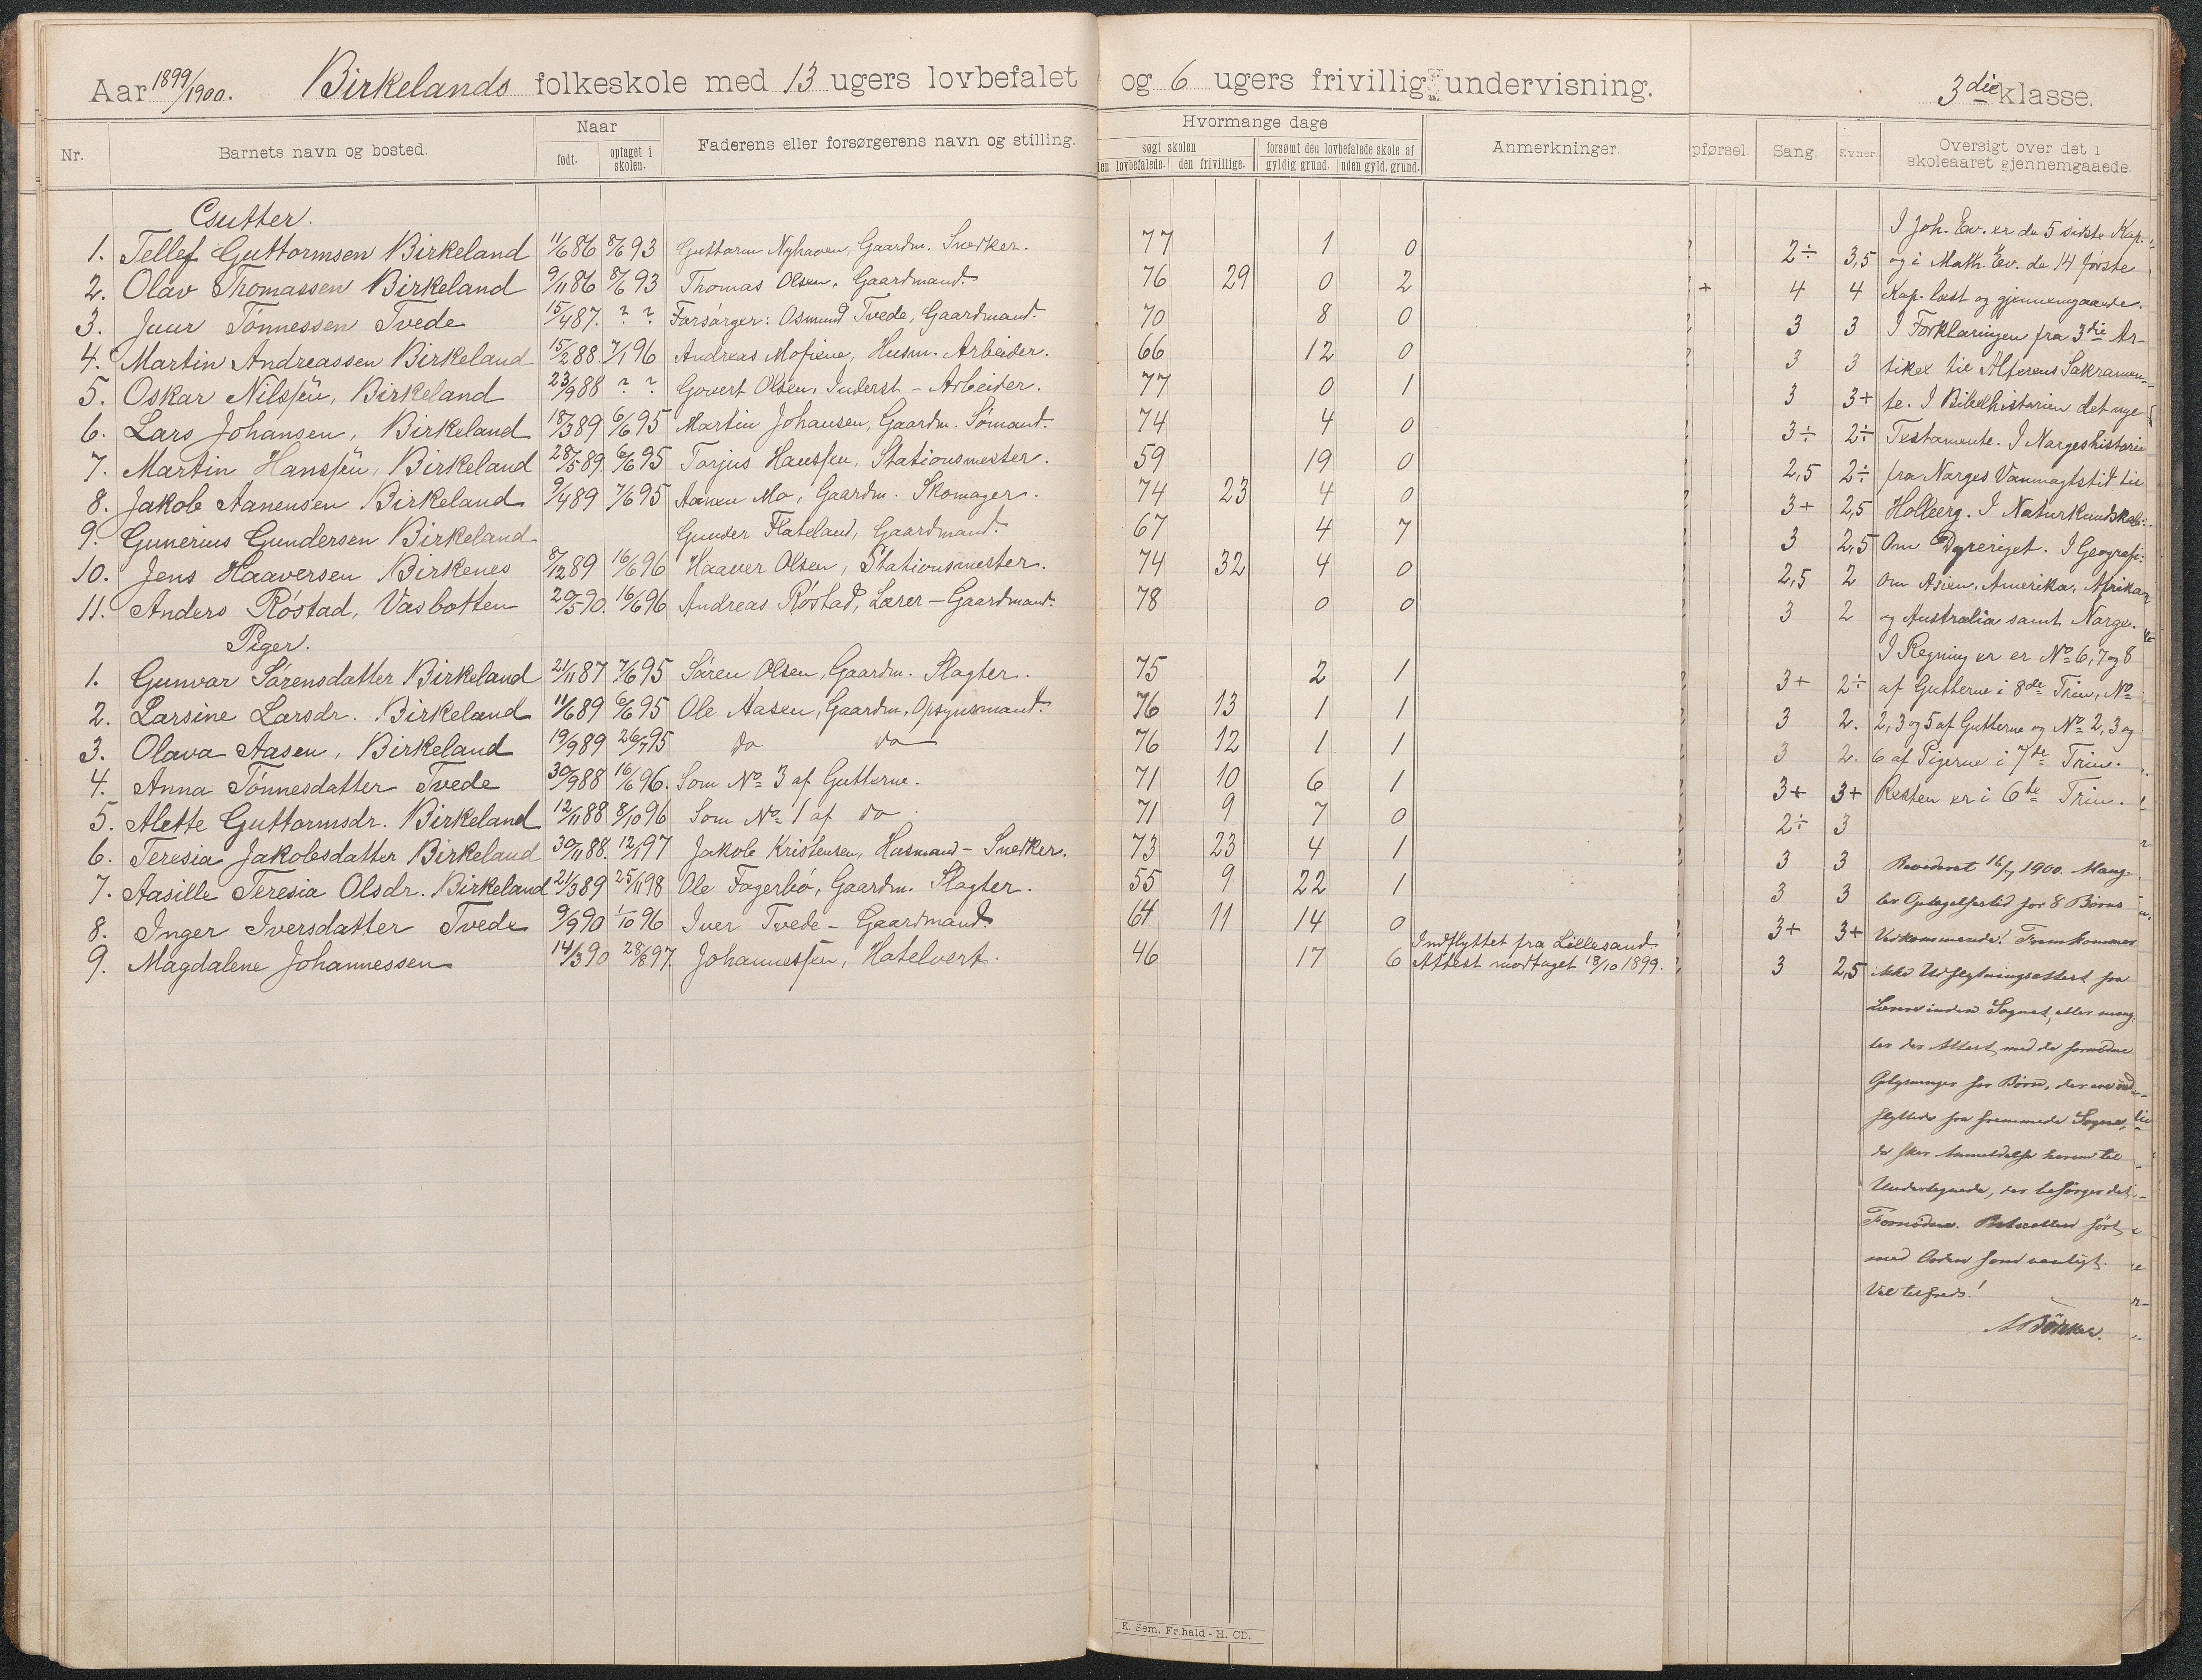 Aar 1899/1900. Birkelands folkeskole med 13 ugers lovbefalet og 6 ugers frivillig undervisning. 3die klasse.
Nr. Barnets navn og bosted. Naar født. optaget i skolen. Faderens eller forsørgerens navn og stilling. Hvormange dage søgt skolen den lovbefalede. den frivillige. forsømt den lovbefalede skole af gyldig grund. uden gyld. grund. Anmerkninger. pførsel. Sang. Evner. Oversigt over det i skoleaaret gjennemgaaede.
Gutter.
1. Tellef Guttormsen Birkeland 11/6 86 8/6 93 Guttorm Nyhaven, Gaardm. Snedker. 77 1 0 2÷ 3,5
2. Olav Thomassen Birkeland 9/11 86 8/6 93 Thomas Olsen, Gaardmand. 76 29 0 2 + 4 4
3. Juur Tønnessen Tvede 15/4 87. ? ? Forsørger: Osmund Tvede, Gaardmand. 70 8 0 3 3
4. Martin Andreassen Birkeland 15/2 88 7/1 96 Andreas Mofiene, Husm. Arbeider. 66 12 0 3 3
5. Oskar Nilssen, Birkeland 23/9 88 ? ? Govert Olsen, Inderst - Arbeider. 77 0 1 3 3+
6. Lars Johansen, Birkeland 18/3 89 6/6 95 Martin Johansen, Gaardm. Sømand. 74 4 0 3÷ 2÷
7. Martin Hanssen, Birkeland 28/5 89. 6/6 95 Torjus Hanssen, Stationsmester. 59 19 0 2,5 2÷
8. Jakob Aanensen Birkeland 9/4 89 7/6 95 Aanen Mo, Gaardm. Skomager. 74 23 4 0 3+ 2,5
9. Gunerius Gundersen Birkeland Gunder Flateland, Gaardmand. 67 4 7 3 2,5
10. Jens Haaversen Birkenes 8/12 89 16/6 96 Haaver Olsen, Stationsmester. 74 32 4 0 2,5 2
11. Anders Røstad, Vasbotten 20/5 90. 16/6 96 Andreas Røstad, Lærer - Gaardmand. 78 0 0 3 2
Piger.
1. Gunvar Sørensdatter Birkeland 21/11 87 7/6 95 Søren Olsen, Gaardm. Slagter. 75 2 1 3+ 2÷
2. Larsine Larsdr. Birkeland 11/6 89 6/6 95 Ole Aasen, Gaardm, Opsynsmand. 76 13 1 1 3 2.
3. Olava Aasen, Birkeland 19/9 89 26/7 95 do do 76 12 1 1 3 2.
4. Anna Tønnesdatter Tvede 30/9 88 16/6 96. Som No 3 af Gutterne. 71 10 6 1 3+ 3+
5. Alette Guttormsdr. Birkeland 12/11 88 8/10 96 Som No 1 af do 71 9 7 0 2÷ 3
6. Teresia Jakobsdatter Birkeland 30/11 88. 12/1 97 Jakob Kristensen, Husmand - Snedker. 73 23 4 1 3 3
7. Aasille Teresia Olsdr. Birkeland 21/3 89 25/11 98 Ole Fagerbø, Gaardm. Slagter. 55 9 22 1 3 3
8. Inger Iversdatter Tvede 9/9 90 1/10 96 Iver Tvede - Gaardmand. 64 11 14 0 3+ 3+
9. Magdalene Johannessen 14/3 90 28/8 97. Johannessen, Hatelvert. 46 17 6 Indflyttet fra Lillesand. Attest modtaget 18/10 1899. 3 2,5
I Joh. Ev. er de 5 sidste Kap.
og i Math. Ev. de 14 første
Kap. læst og gjennemgaaede.
I Forklaringen fra 3die Ar-
tikel til Alterens Sakramen-
te. I Bibelhistorien det nye
Testamente. I Norgeshistorie
fra Norges Vanmagtstid til
Holberg. I Naturkundskab:
Om Dyreriget. I Geografi:
Om Asien, Amerika, Afrika
og Australia samt Norge.
I Regning er No 6, 7 og 8
af Gutterne i 8de Trin, No
2, 3 og 5 af Gutterne og No 2, 3 og
6 af Pigerne i 7de Trin.
Resten er i 6te Trin.
Revideret 16/7 1900. Mang-
ler Optagelsestid for 8 Børns
Vedkommende. Fremkommer
ikke Udflytningsattest fra
Lærere inden Sognet, eller mang-
ler der Attest med de fornødne
Oplysninger for Børn, der ere ind-
flyttede fra fremmede Sogne,
da sker Anmeldelse herom til
Undertegnede, der besørger det
Fornødne. Protocollen ført
med Orden som vanligt.
Vel tilfreds!
E. Sem. Fr.hald - H. CD.